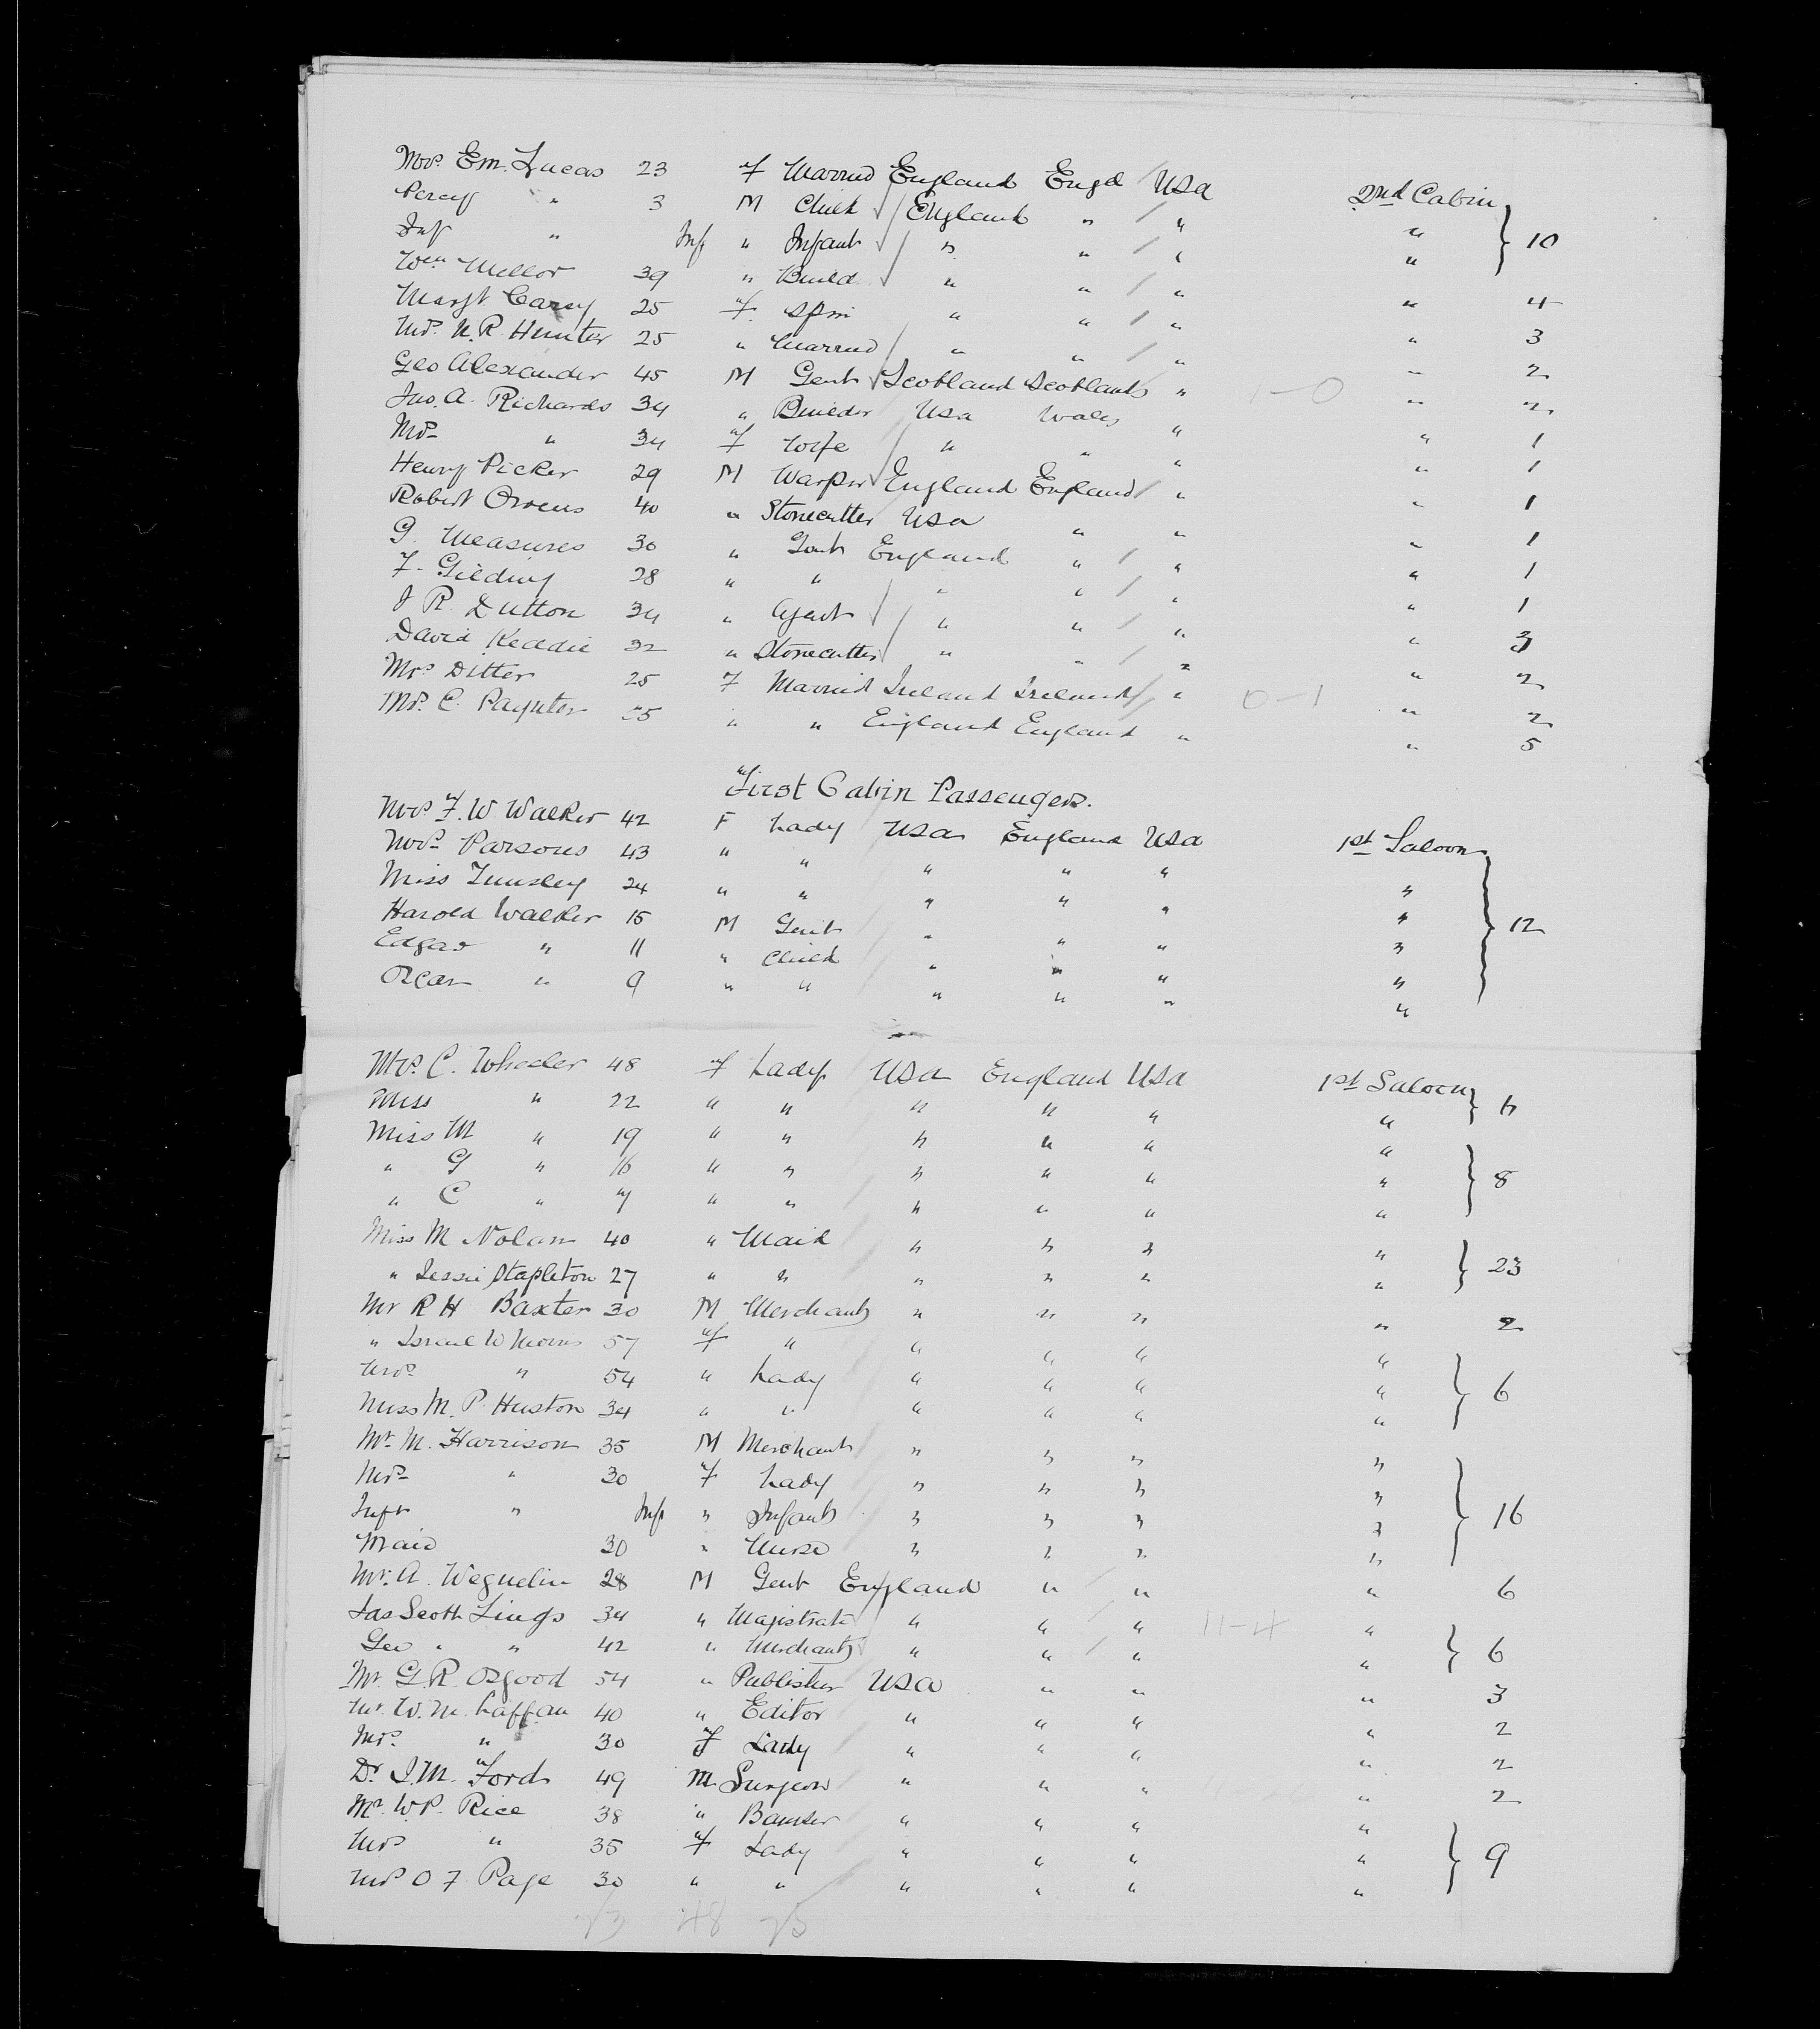 Mrs. Em. Lucas 23 F Married England Engd USA 2nd Cabin
Percy " 3 M Child England " " " 10
Inf " Inf " Infant " " " "
Wm Mellor 39 " Build " " " " 4
Margt Carey 25 F Spin " " " " 3
Mrs. N. R. Hunter 25 " Married " " " " 2
Geo Alexander 45 M Gent Scotland Scotland " 1-0 " 2
Jno. A. Richards 34 " Builder USA Wales " " 1
Mrs " 34 F Wife " " " " 1
Henry Picker 29 M Warper England England " " 1
Robert Owens 40 " Stonecutter USA " " " 1
G. Measures 30 " Gent England " " " 1
F. Gilding 28 " " " " " " 1
J R. Dutton 34 " Agent " " " " 3
David Keddie 32 " Stonecutter " " " " 2
Mrs Ditter 25 F Married Ireland Ireland " 0-1 " 2
Mrs. C. Paynter " " England England " " 5
First Cabin Passengers.
Mrs F. W Walker 42 F Lady USA England USA 1st Saloon
Mrs Parsons 43 " " " " " "
Miss 24 " " " " " "
Harold Walker 15 M Gent " " " " 12
Edgar " 11 " Child " " " "
Oscar " 9 " " " " " "
Mrs. C. Wheeler 48 F Lady USA England USA 1st Saloon
Miss " 22 " " " " " "
Miss M " 19 " " " " " "
" G " 16 " " " " " " 8
" C " 7 " " " " " "
Miss M Nolan 40 " Maid " " " " 23
" Jessie Stapleton 27 " " " " " "
Mr R H Baxter 30 M Merchant " " " " 2
" Israel W Morris 57 F " " " " "
Mrs " 54 " Lady " " " " 6
Miss M. P. Huston 34 " " " " " "
Mr. M. Harrison 35 M Merchant " " " "
Mrs " 30 F Lady " " " "
Inft " Inf " Infant " " " " 16
Maid 30 " Nurse " " " "
Mr. A. Weguelin 28 M Gent England " " " 6
Jas Scott Lings 34 " Magistrate " " " 11-4 "
Geo " " 42 " Merchant " " " " 6
Mr. G. R. Osgood 54 " Publisher USA " " " 3
Mr. W. M. Laffan 40 " Editor " " " " 2
Mrs. " 30 F Lady " " " " 2
Dr. J. M. Ford 49 M Surgeon " " " " 2
Mr. W. P. Rice 38 " Banker " " " "
Mrs " 35 F Lady " " " " 9
Mrs O F Page 30 " " " " " "
73 48 25